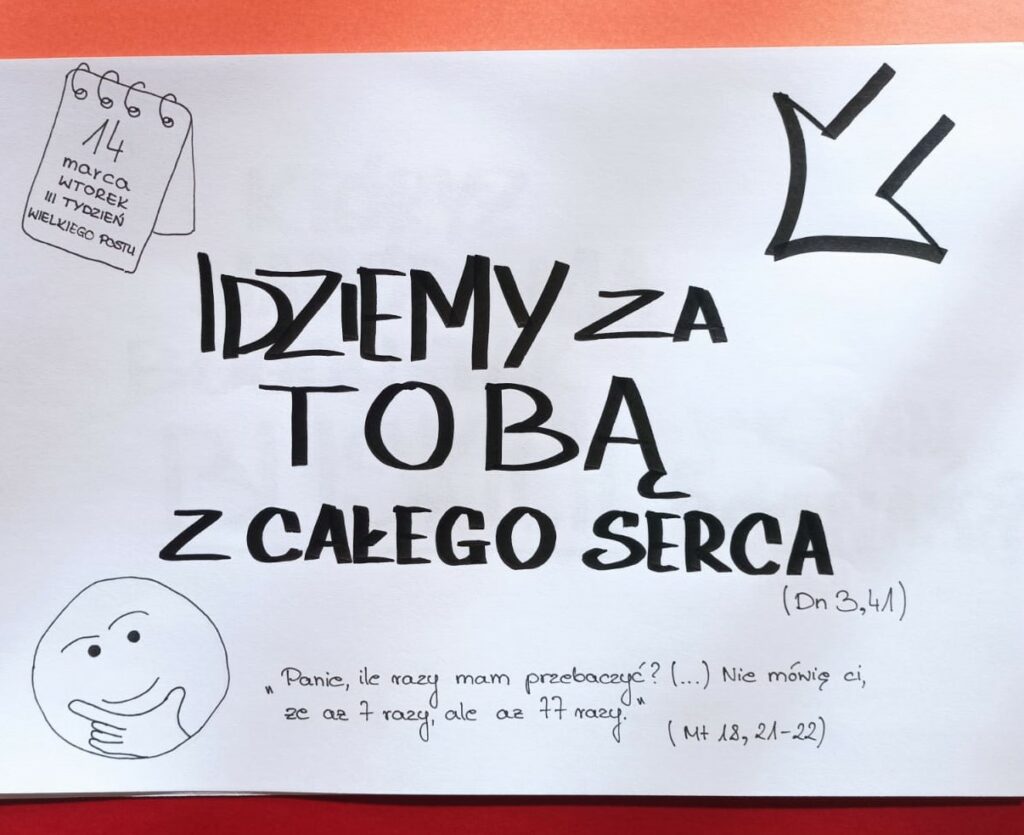 14
marca
WTOREK
III TYDZIEŃ
WIELKIEGO POSTU
IDZIEMY ZA
TOBĄ
Z CAŁEGO SERCA
(Dn 3,41)
„Panie, ile razy mam przebaczyć? (...) Nie mówię ci,
że aż 7 razy, ale aż 77 razy."
(Mt 18, 21-22)